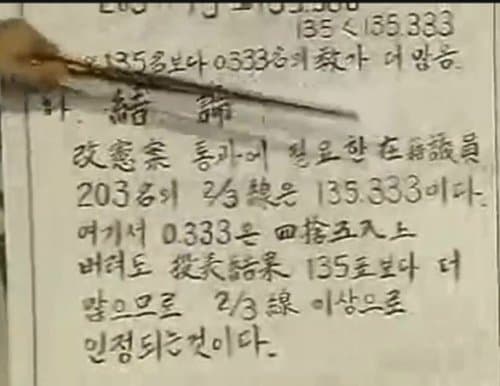 135 < 135.333
135名보다 0.333名의 數가 더 많음.
結論
改憲案 통과에 필요한 在籍議員
203名의 2/3 線은 135.333이다.
여기서 0.333은 四捨五入上
버려도 投表結果 135표보다 더
많으므로 2/3 線 이상으로
인정되는것이다.